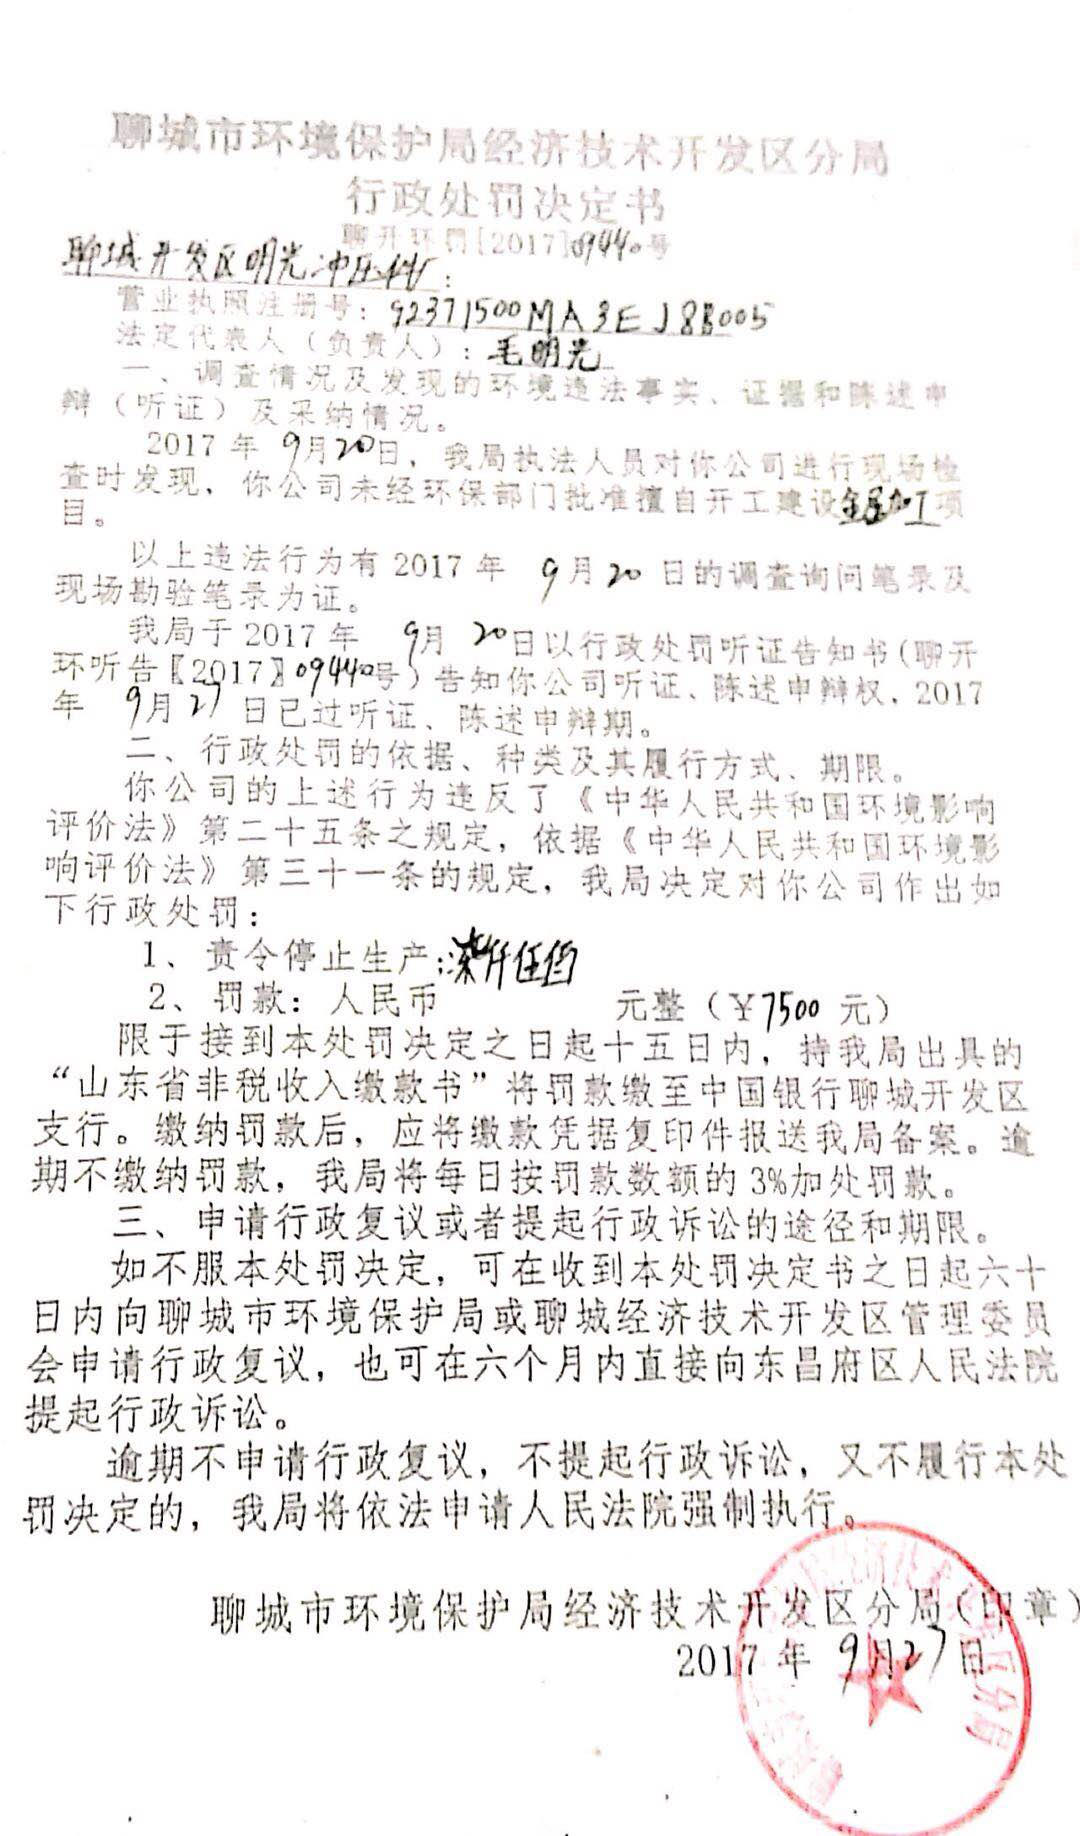 聊城市环境保护局经济技术开发区分局
行政处罚决定书
聊开环罚[2017]09440号
聊城开发区明光冲压件厂：
营业执照注册号：92371500MA3EJ8B005
法定代表人（负责人）：毛明光
一、调查情况及发现的环境违法事实、证据和陈述申
辩（听证）及采纳情况。
2017年 9月20日，我局执法人员对你公司进行现场检
查时发现，你公司未经环保部门批准擅自开工建设金属加工项
目。
以上违法行为有2017年 9月20日的调查询问笔录及
现场勘验笔录为证。
我局于2017年 9月20日以行政处罚听证告知书(聊开
环听告〖2017〗09440号）告知你公司听证、陈述申辩权，2017
年 9月27日已过听证、陈述申辩期。
二、行政处罚的依据、种类及其履行方式、期限。
你公司的上述行为违反了《中华人民共和国环境影响
评价法》第二十五条之规定，依据《中华人民共和国环境影
响评价法》第三十一条的规定，我局决定对你公司作出如
下行政处罚：
1、责令停止生产；
2、罚款：人民币柒仟伍佰元整（￥7500元）
限于接到本处罚决定之日起十五日内，持我局出具的
“山东省非税收入缴款书”将罚款缴至中国银行聊城开发区
支行。缴纳罚款后，应将缴款凭据复印件报送我局备案。逾
期不缴纳罚款，我局将每日按罚款数额的3%加处罚款。
三、申请行政复议或者提起行政诉讼的途径和期限。
如不服本处罚决定，可在收到本处罚决定书之日起六十
日内向聊城市环境保护局或聊城经济技术开发区管理委员
会申请行政复议，也可在六个月内直接向东昌府区人民法院
提起行政诉讼。
逾期不申请行政复议，不提起行政诉讼，又不履行本处
罚决定的，我局将依法申请人民法院强制执行。
聊城市环境保护局经济技术开发区分局（印章）
2017年 9月27日